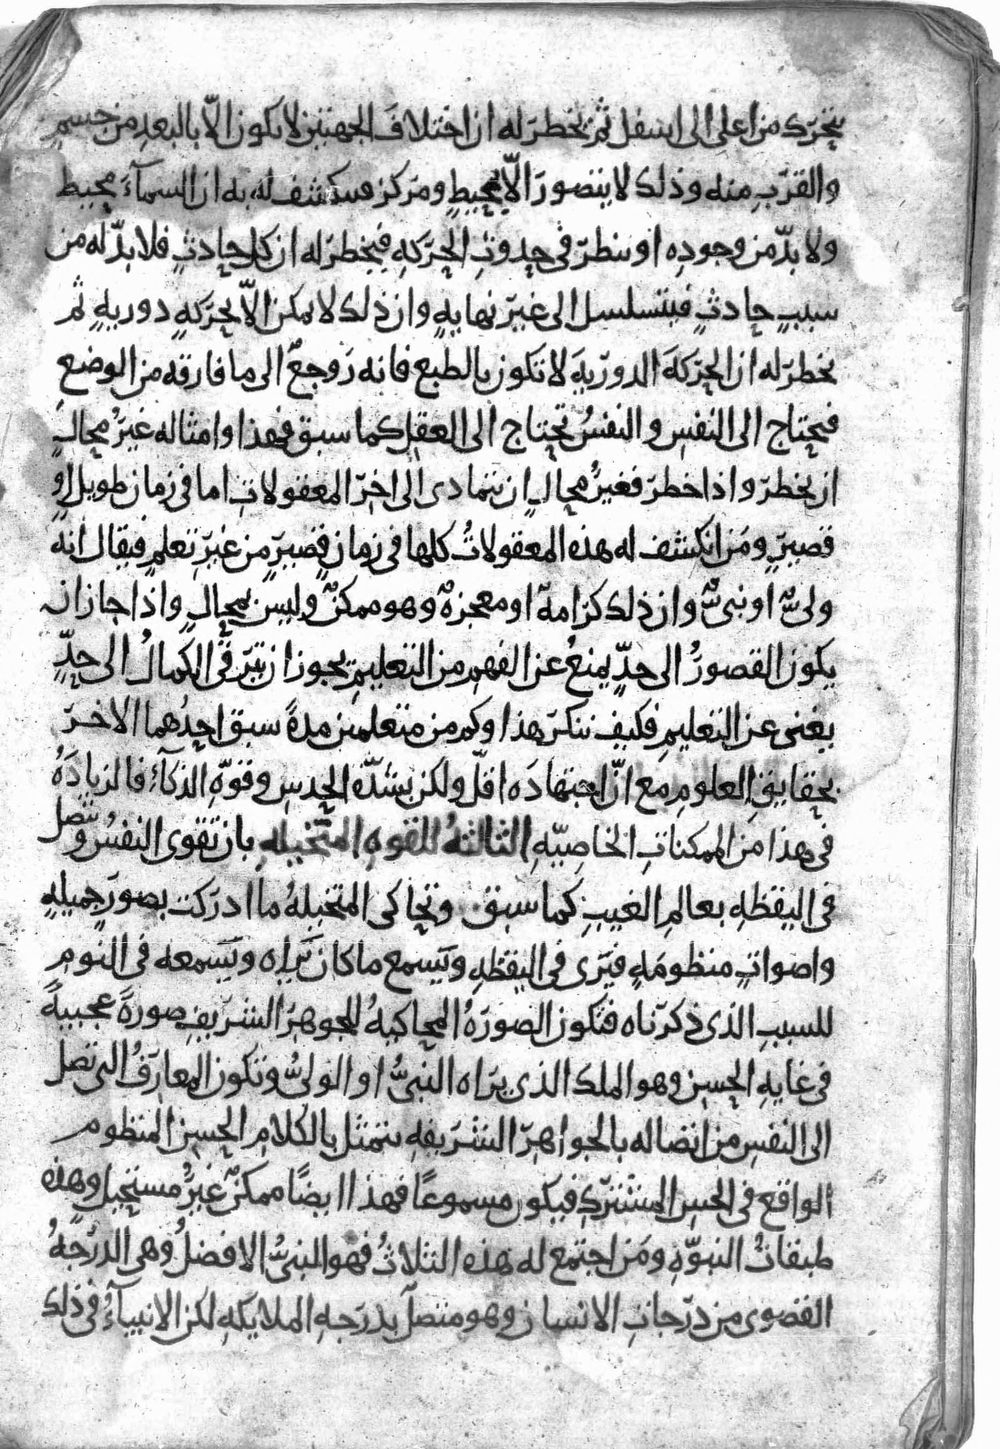 يتحرك من اعلى الى اسفل ثم يخطر له ان اختلاف الجهتين لا يكون الّا بالبعد من جسم
والقرب منه وذلك لا يتصور الّا بمحيط ومركز فينكشف له به ان السمآء محيط
ولا بدّ من وجوده او ينظر في حدوث الحركه فيخطر له ان كل حادث فلا بدّ له من
سبب حادث فيتسلسل الى غير نهايه وان ذلك لا يمكن الّا بحركه دوريه ثم
يخطر له ان الحركة الدورية لا تكون بالطبع فانه رجوع الى ما فارقه من الوضع
فيحتاج الى النفس والنفس تحتاج الى العقل كما سبق فهذا وامثاله غير محال
ان يخطر واذا خطر فغير محال ان يتمادى الى اخر المعقولات اما في زمان طويل او
قصير ومن انكشف له هذه المعقولات كلها في زمان قصير من غير تعلم فيقال انه
ولىّ او نبىّ وان ذلك كرامة او معجزة وهو ممكن وليس بمحال واذا جاز ان
يكون القصور الى حدّ يمنع عن الفهم من التعليم يجوز ان يترقى الكمال الى حدّ
يغنى عن التعليم فكيف ينكر هذا وكم من متعلمين مدة سبق احدهما الاخر
بحقايق العلوم مع انّ اجتهاده اقلّ ولكن بشدّة الحدس وقوّة الذكآء فالزيادة
في هذا من الممكنات الخاصيّه الثالثة للقوه المتخيله بان تقوى النفس وتتصل
في اليقظه بعالم الغيب كما سبق وتحاكى المتخيلة ما ادركت بصور جميله
واصوات منظومة فيرى في اليقظه ويسمع ما كان يراه ويسمعه في النوم
للسبب الذى ذكرناه فتكون الصورة المحاكية للجوهر الشريف صورة عجيبة
في غايه الحسن وهو الملك الذى يراه النبىّ او الولىّ وتكون المعارف التى تصل
الى النفس من اتصاله بالجواهر الشريفه يتمثل بالكلام الحسن المنظوم
الواقع في الحس المشترك فيكون مسموعًا فهذا ايضًا ممكن غير مستحيل وهذه
طبقات النبوّة ومن اجتمع له هذه الثلاث فهو النبىّ الافضل وهى الدرجة
القصوى من درجات الانسان وهو متصل بدرجه الملايكه لكن الانبيآء في ذلك